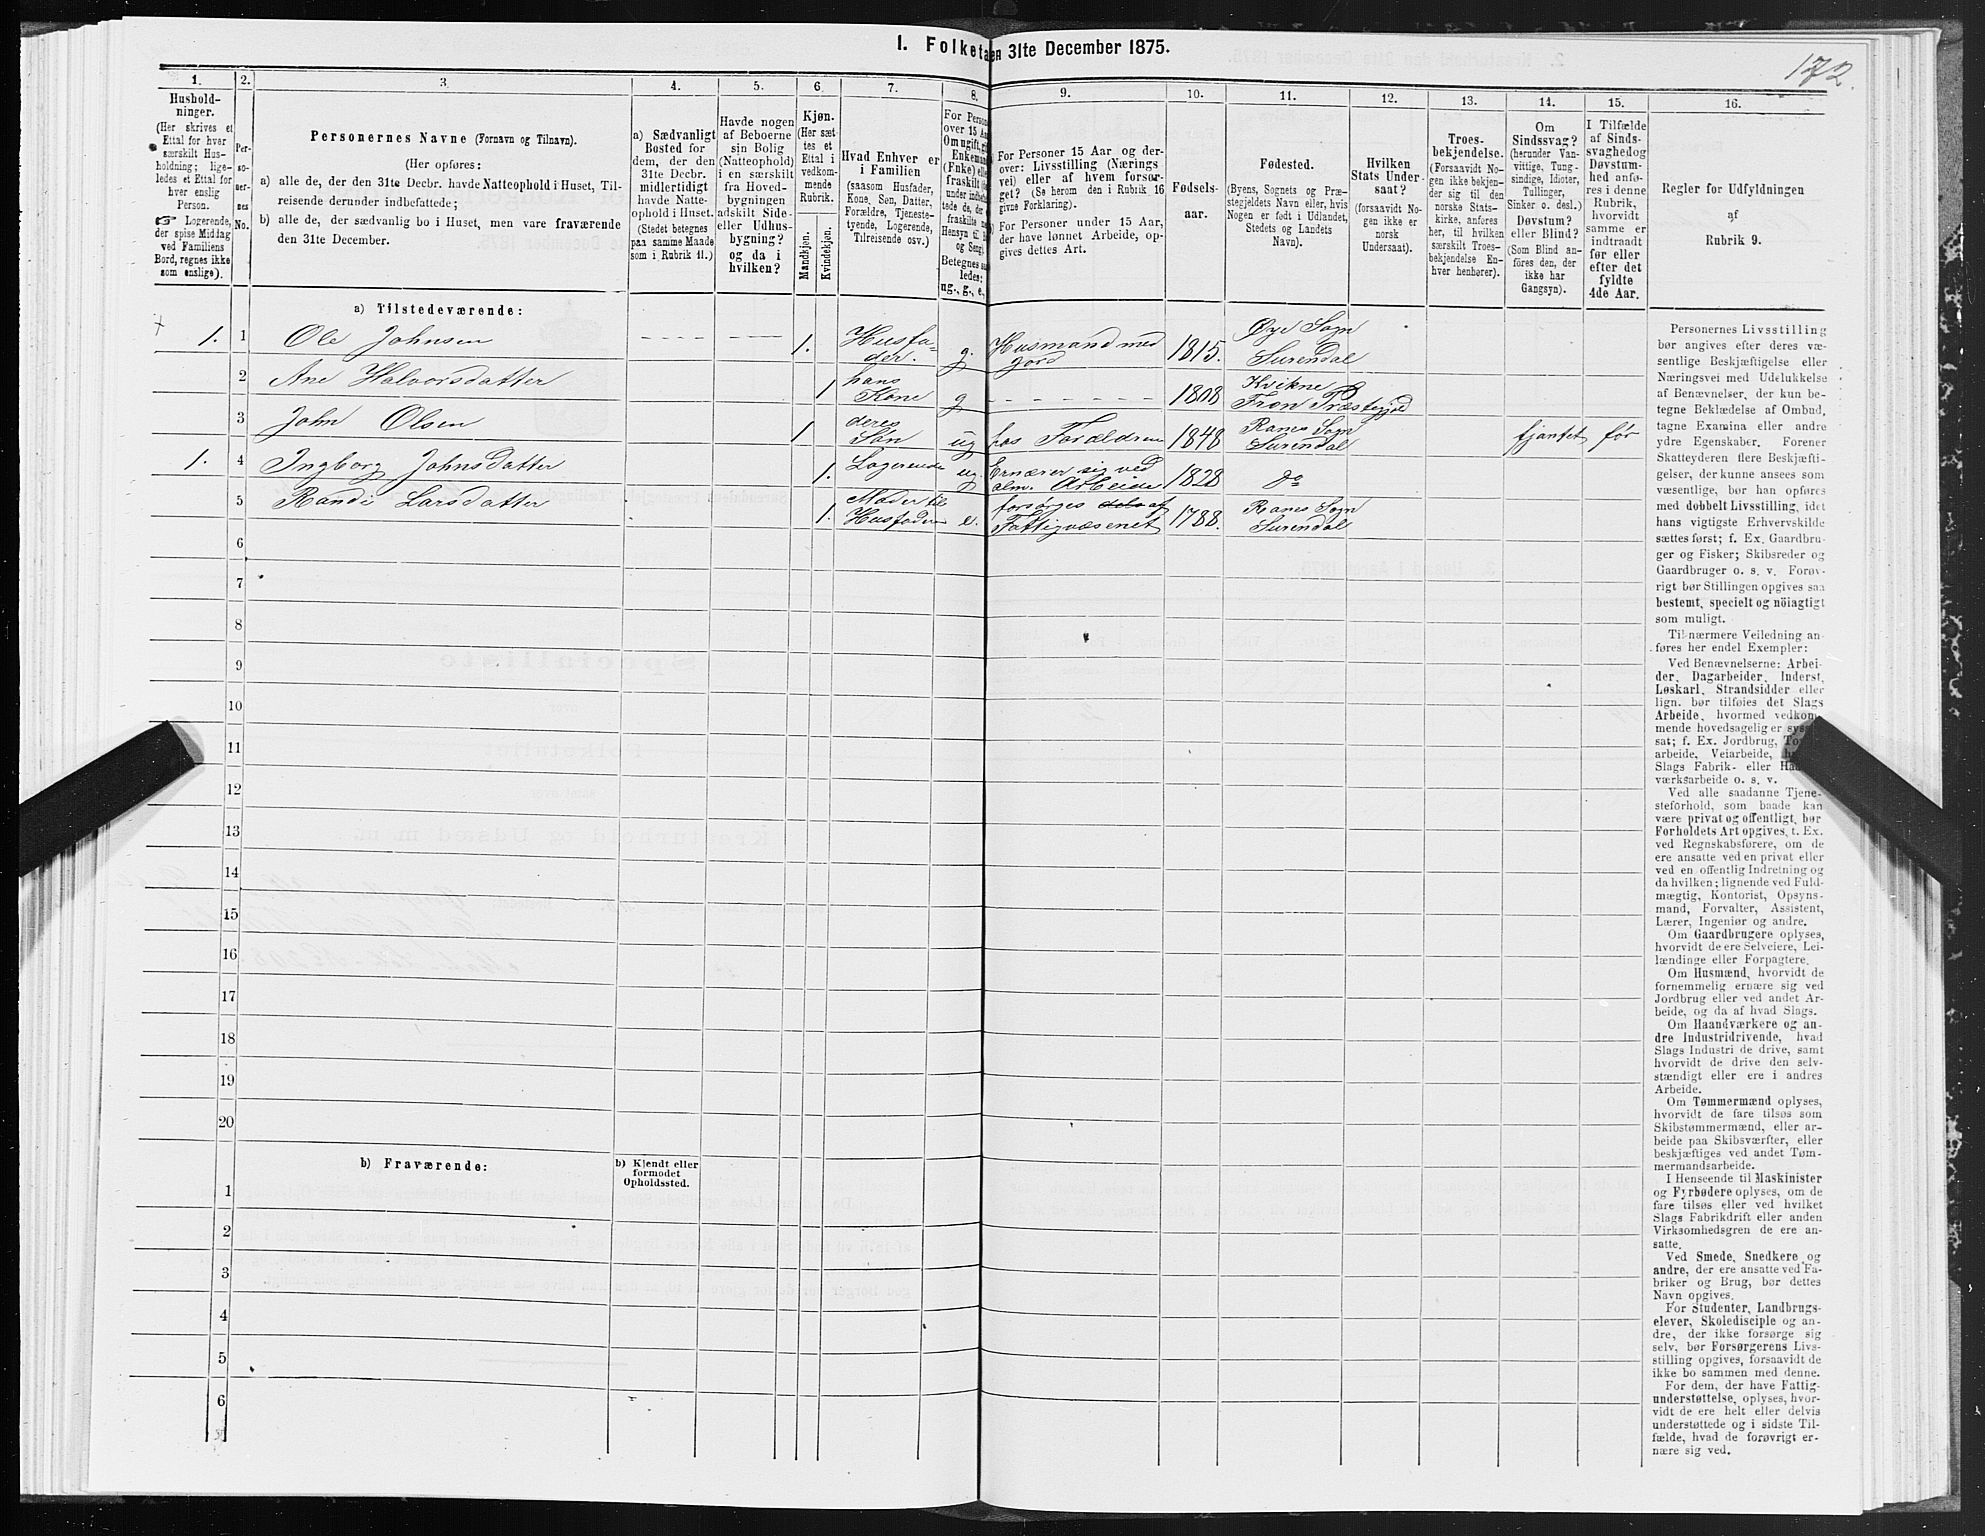 172.
I. Folketa
en 31te December 1875.
1.
2.
3.
4.
5.
6.
7.
8.
9.
10.
11.
12.
13.
14.
15.
16.
Hushold-
ninger.
(Her skrives et
Ettal for hver
særskilt Hus-
holdning; lige-
ledes et Ettal for
hver enslig
Person.
☞ Logerende,
der spise Middag
ved Familiens
Bord, regnes ikke
som enslige).
Per-
so-
ner-
nes
No.
Personernes Navne (Fornavn og Tilnavn).
(Her opføres:
a) alle de, der den 31te Decbr. havde Natteophold i Huset, Til-
reisende derunder indbefattede;
b) alle de, der sædvanlig bo i Huset, men vare fraværende
den 31te December.
a) Sædvanligt
Bosted for
dem, der den
31te Decbr.
midlertidigt
havde Natte-
ophold i Huset.
(Stedet betegnes
paa samme Maade
som i Rubrik 11.)
Havde nogen
af Beboerne
sin Bolig
(Natteophold)
i en særskilt
fra Hoved-
bygningen
adskilt Side-
eller Udhus-
bygning?
og da i
hvilken?
Kjøn.
(Her sæt-
tes et
Ettal i
vedkom-
mende
Rubrik.
Mandkjøn.
Kvindekjøn.
Hvad Enhver er
i Familien
(saasom Husfader,
Kone, Søn, Datter,
Forældre, Tjeneste-
tyende, Logerende,
Tilreisende osv.)
For Person
over 15 Aa
Om ugift, gi
Enkeman
(Enke) elle
fraskilt (de
under indbefat
tede de, der e
fraskilte me
Hensyn til B
og Seng)
Betegnes sa
ledes:
ug., g., e.,
For Personer 15 Aar og der-
over: Livsstilling (Nærings
vei) eller af hvem forsør-
get? (Se herom den i Rubrik 16
givne Forklaring).
For Personer under 15 Aar,
der have lønnet Arbeide, op-
gives dettes Art.
Fødsels-
aar.
Fødested.
(Byens, Sognets og Præ-
stegjeldets Navn eller, hvis
Nogen er født i Udlandet,
Stedets og Landets
Navn).
Hvilken
Stats Under-
saat?
(forsaavidt No-
gen ikke er
norsk
Undersaat).
Troes-
bekjendelse.
(Forsaavidt No-
gen ikke bekjen-
der sig til den
norske Stats-
kirke, anføres
her, til hvilken
særskilt Troes-
bekjendelse En-
hver henhører).
Om
Sindssvag?
(herunder Van-
vittige, Tung-
sindige, Idioter,
Tullinger,
Sinker o. desl.)
Døvstum?
eller Blind?
(Som Blind an-
føres den, der
ikke har
Gangsyn).
I Tilfælde
af Sinds-
svaghedog
Døvstum-
hed anfø-
res i denne
Rubrik,
hvorvidt
samme er
indtraadt
før eller
efter det
fyldte
4de Aar.
Regler for Udfyldningen
af
Rubrik 9.
a) Tilstedeværende:
1. 1 Ole Johnsen 1. Husfa=der. g. Husmand med Jord 1815. Øye Sogn Surendal
2 Ane Halvorsdatter 1 hans Kone g 1808 Kvikne Fron Præstegjeld
3 John Olsen 1 deres Søn ug hos Forældrene 1848 Ranes Sogn Surendal fjantet før
1. 4 Ingborg Johnsdatter 1. Logerende ug. Ernærer sig ved alm. Arbeide 1828 do
5 Randi Larsdatter 1. Moder til Husfaderen e. forsørges delv af Fattigvæsenet 1788. Ranes Sogn Surendal
6
7
8
9
10
11
12
13
14
15
16
17
18
19
20
b) Fraværende:
b) Kjendt eller
formodet
Opholdssted.
1
2
3
4
5
6
Personernes Livsstilling
bør angives efter deres væ-
sentlige Beskjæftigelse eller
Næringsvei med Udelukkelse
af Benævnelser, der kun be-
tegne Beklædelse af Ombud,
tagne Examina eller andre
ydre Egenskaber. Forener
Skatteyderen flere Beskjæfti-
gelser, der kunne ansees som
væsentlige, bør han opføres
med dobbelt Livsstilling, idet
hans vigtigste Erhvervskilde
sættes først; f. Ex. Gaardbru-
ger og Fisker; Skibsreder og
Gaardbruger o. s. v. Forøv-
rigt bør Stillingen opgives saa
bestemt, specielt og nöiagtigt
som muligt.
Til nærmere Veiledning an-
føres her endel Exempler:
Ved Benævnelserne: Arbei-
der, Dagarbeider, Inderst,
Løskarl, Strandsidder eller
lign. bør tilføies det Slags
Arbeide, hvormed vedkom-
mende hovedsagelig er syssel-
sat; f. Ex. Jordbrug,
arbeide, Veiarbeide,
Slags Fabrik- eller
værksarbeide o. s. v.
Ved alle saadanne Tjene-
steforhold, som baade kan
være privat og offentlig, bør
Forholdets Art opgives, t. Ex.
ved Regnskabsførere, om de
ere ansatte ved en privat eller
ved en offentlig Indretning og
da hvilken; lignende ved Fuld-
mægtig, Kontorist, Opsyns-
mand, Forvalter, Assistent,
Lærer, Ingeniør og andre.
Om Gaardbrugere oplyses,
hvorvidt de ere Selveiere, Lei-
lændinge eller Forpagtere.
Om Husmænd, hvorvidt de
fornemmelig ernære sig ved
Jordbrug eller ved andet Ar-
beide, og da af hvad Slags.
Om Haandværkere og an-
dre Industridrivende, hvad
Slags Industri de drive, samt
hvorvidt de drive den selv-
stændigt eller ere i andres
Arbeide.
Om Tømmermænd oplyses,
hvorvidt de fare tilsøs som
Skibstømmermænd, eller ar-
beide paa Skibsværfter, eller
beskjæftiges ved andet Tøm-
mermandsarbeide.
I Henseende til Maskinister
og Fyrbødere oplyses, om de
fare tilsøs eller ved hvilket
Slags Fabrikdrift eller anden
Virksomhedsgren de ere an-
satte.
Ved Smede, Snedkere og
andre, der ere ansatte ved Fa-
briker og Brug, bør dettes
Navn opgives.
For Studenter, Landbrugs-
elever, Skoledisciple og an-
dre, der ikke forsørge sig
selv, bør Forsørgerens Livs-
stilling opgives, forsaavidt de
ikke bo sammen med denne.
For dem, der have Fattig-
understøttelse, oplyses, hvor-
vidt de ere helt eller delvis
understøttede og i sidste Til-
fælde, hvad de forøvrigt er-
nære sig ved.